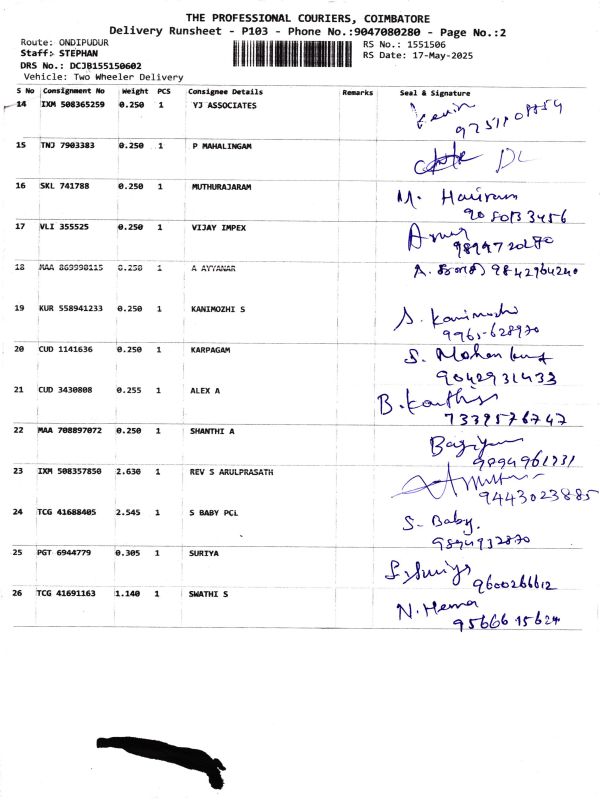 THE PROFESSIONAL COURIERS, COIMBATORE
Delivery Runsheet - P103 - Phone No.:9047080280 - Page No.:2
Route: ONDIPUDUR RS No.: 1551506
Staff: STEPHAN RS Date: 17-May-2025
DRS No.: DCJB155150602
Vehicle: Two Wheeler Delivery
S No Consignment No Weight PCS Consignee Details Remarks Seal & Signature
14 IXM 508365259 0.250 1 YJ ASSOCIATES
15 TNJ 7903383 0.250 1 P MAHALINGAM
16 SKL 741788 0.250 1 MUTHURAJARAM M. Hariram
17 VLI 355525 0.250 1 VIJAY IMPEX
9894720270
18 MAA 869998115 0.250 1 A AYYANAR A. 9842964240
19 KUR 558941233 0.250 1 KANIMOZHI S S. Kanimozhi
9965-628970
20 CUD 1141636 0.250 1 KARPAGAM S. Mohan
9042931433
21 CUD 3430808 0.255 1 ALEX A B.
7339576747
22 MAA 708897072 0.250 1 SHANTHI A
9894961731
23 IXM 508357850 2.630 1 REV S ARULPRASATH
9443023885
24 TCG 41688405 2.545 1 S BABY PCL S- Baby.
9894932870
25 PGT 6944779 0.305 1 SURIYA S. Suriya
9600266612
26 TCG 41691163 1.140 1 SWATHI S N. Hema
9566615624